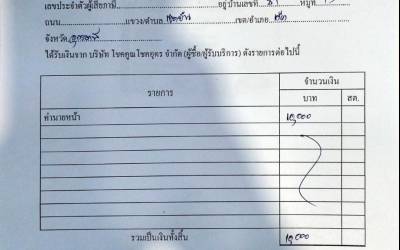 เลขประจำตัวผู้เสียภาษี อยู่บ้านเลขที่ หมู่ที่
ถนน แขวง/ตำบล เขต/อำเภอ
จังหวัด
ได้รับเงินจาก บริษัท โชคคูณโชคยุคร จำกัด (ผู้ซื้อ/ผู้รับบริการ) ดังรายการต่อไปนี้
รายการ จำนวนเงิน
บาท สต.
ค่านายหน้า ๑๐,๐๐๐
รวมเป็นเงินทั้งสิ้น ๑๐,๐๐๐